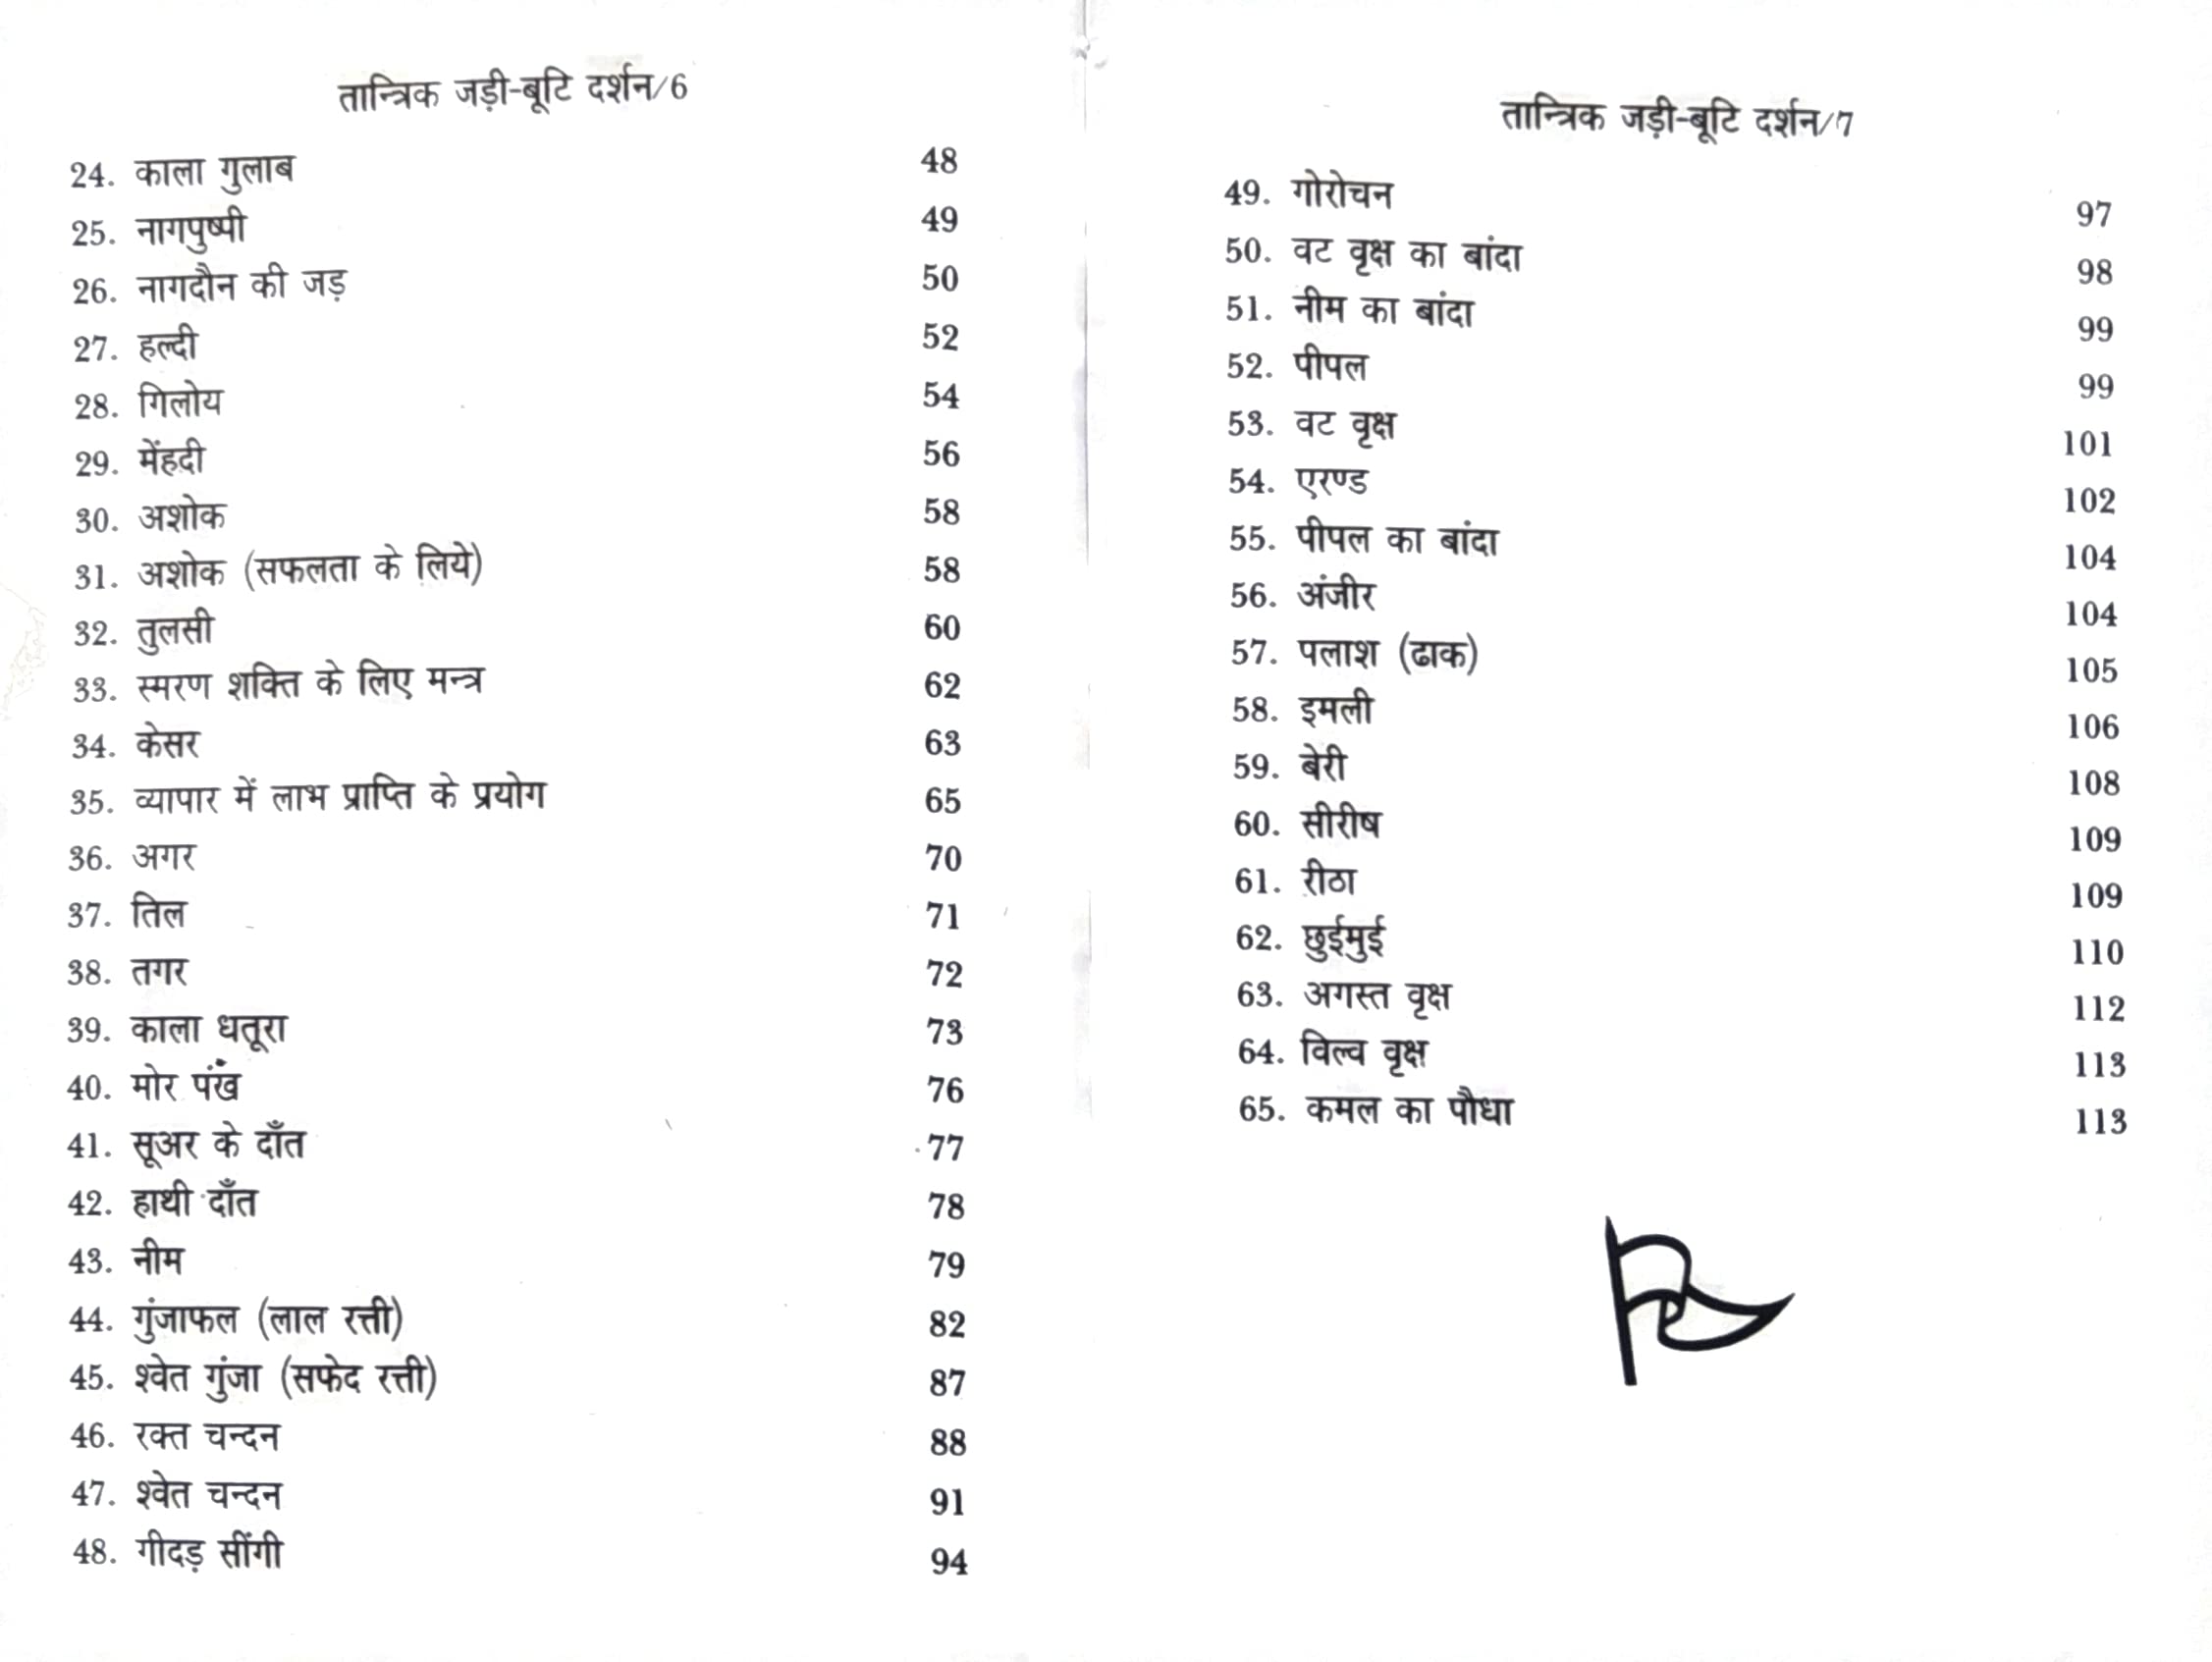 तान्त्रिक जड़ी-बूटि दर्शन/6
24. काला गुलाब 48
25. नागपुष्पी 49
26. नागदौन की जड़ 50
27. हल्दी 52
28. गिलोय 54
29. मेंहदी 56
30. अशोक 58
31. अशोक (सफलता के लिये) 58
32. तुलसी 60
33. स्मरण शक्ति के लिए मन्त्र 62
34. केसर 63
35. व्यापार में लाभ प्राप्ति के प्रयोग 65
36. अगर 70
37. तिल 71
38. तगर 72
39. काला धतूरा 73
40. मोर पंख 76
41. सूअर के दाँत 77
42. हाथी दाँत 78
43. नीम 79
44. गुंजाफल (लाल रत्ती) 82
45. श्वेत गुंजा (सफेद रत्ती) 87
46. रक्त चन्दन 88
47. श्वेत चन्दन 91
48. गीदड़ सींगी 94
तान्त्रिक जड़ी-बूटि दर्शन/7
49. गोरोचन 97
50. वट वृक्ष का बांदा 98
51. नीम का बांदा 99
52. पीपल 99
53. वट वृक्ष 101
54. एरण्ड 102
55. पीपल का बांदा 104
56. अंजीर 104
57. पलाश (ढाक) 105
58. इमली 106
59. बेरी 108
60. सीरीष 109
61. रीठा 109
62. छुईमुई 110
63. अगस्त वृक्ष 112
64. विल्व वृक्ष 113
65. कमल का पौधा 113